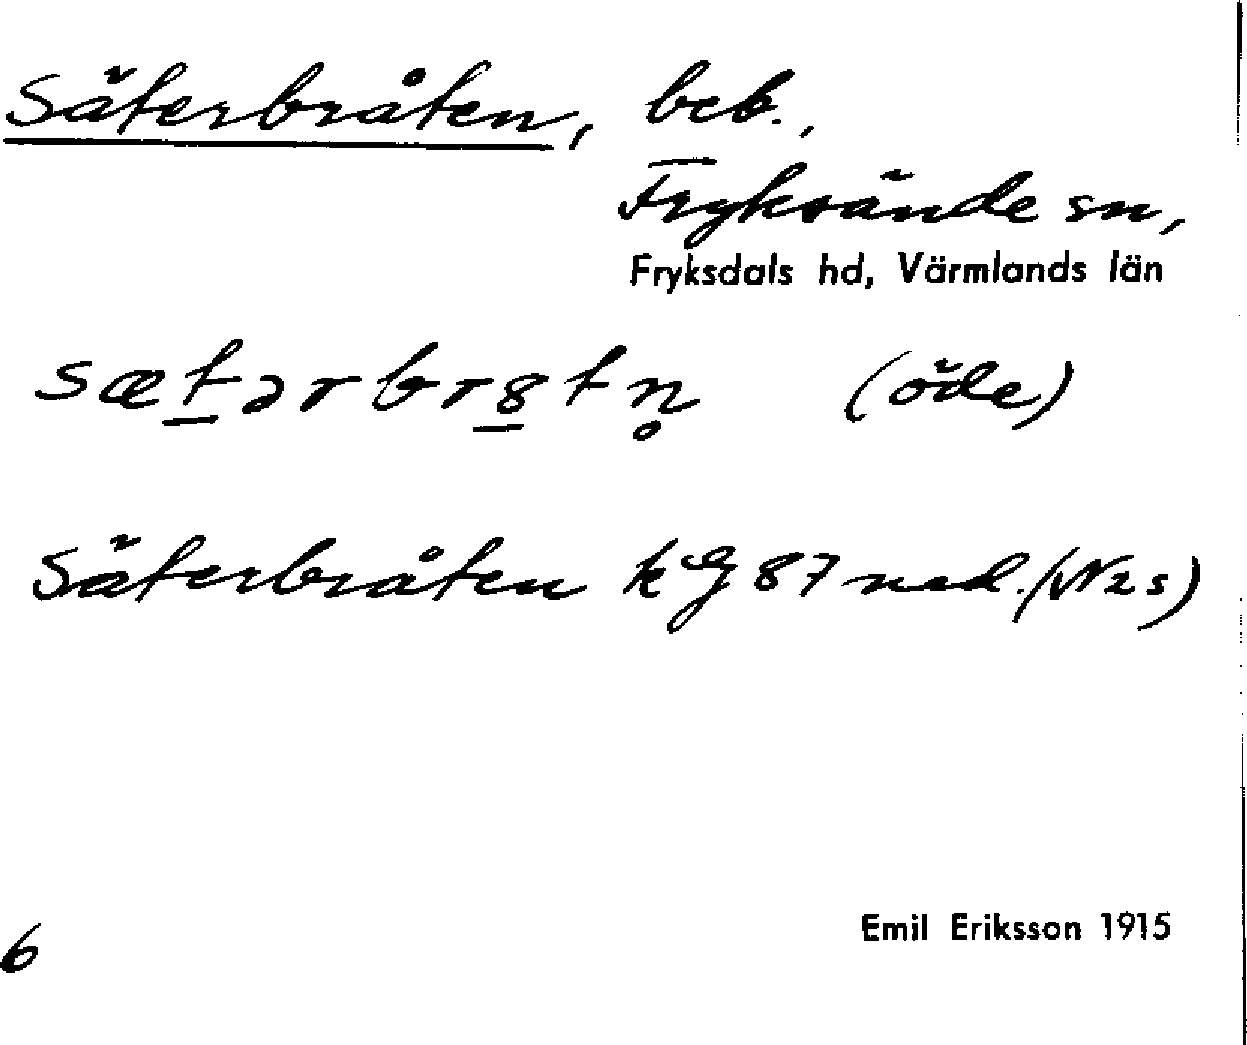 Säterbråten, beb.,
Fryksände sn,
Fryksdals hd, Värmlands län
sæt̠ərbr8̠tn̥ (öde)
Säterbråten
87 ned.
Emil Eriksson 1915
6